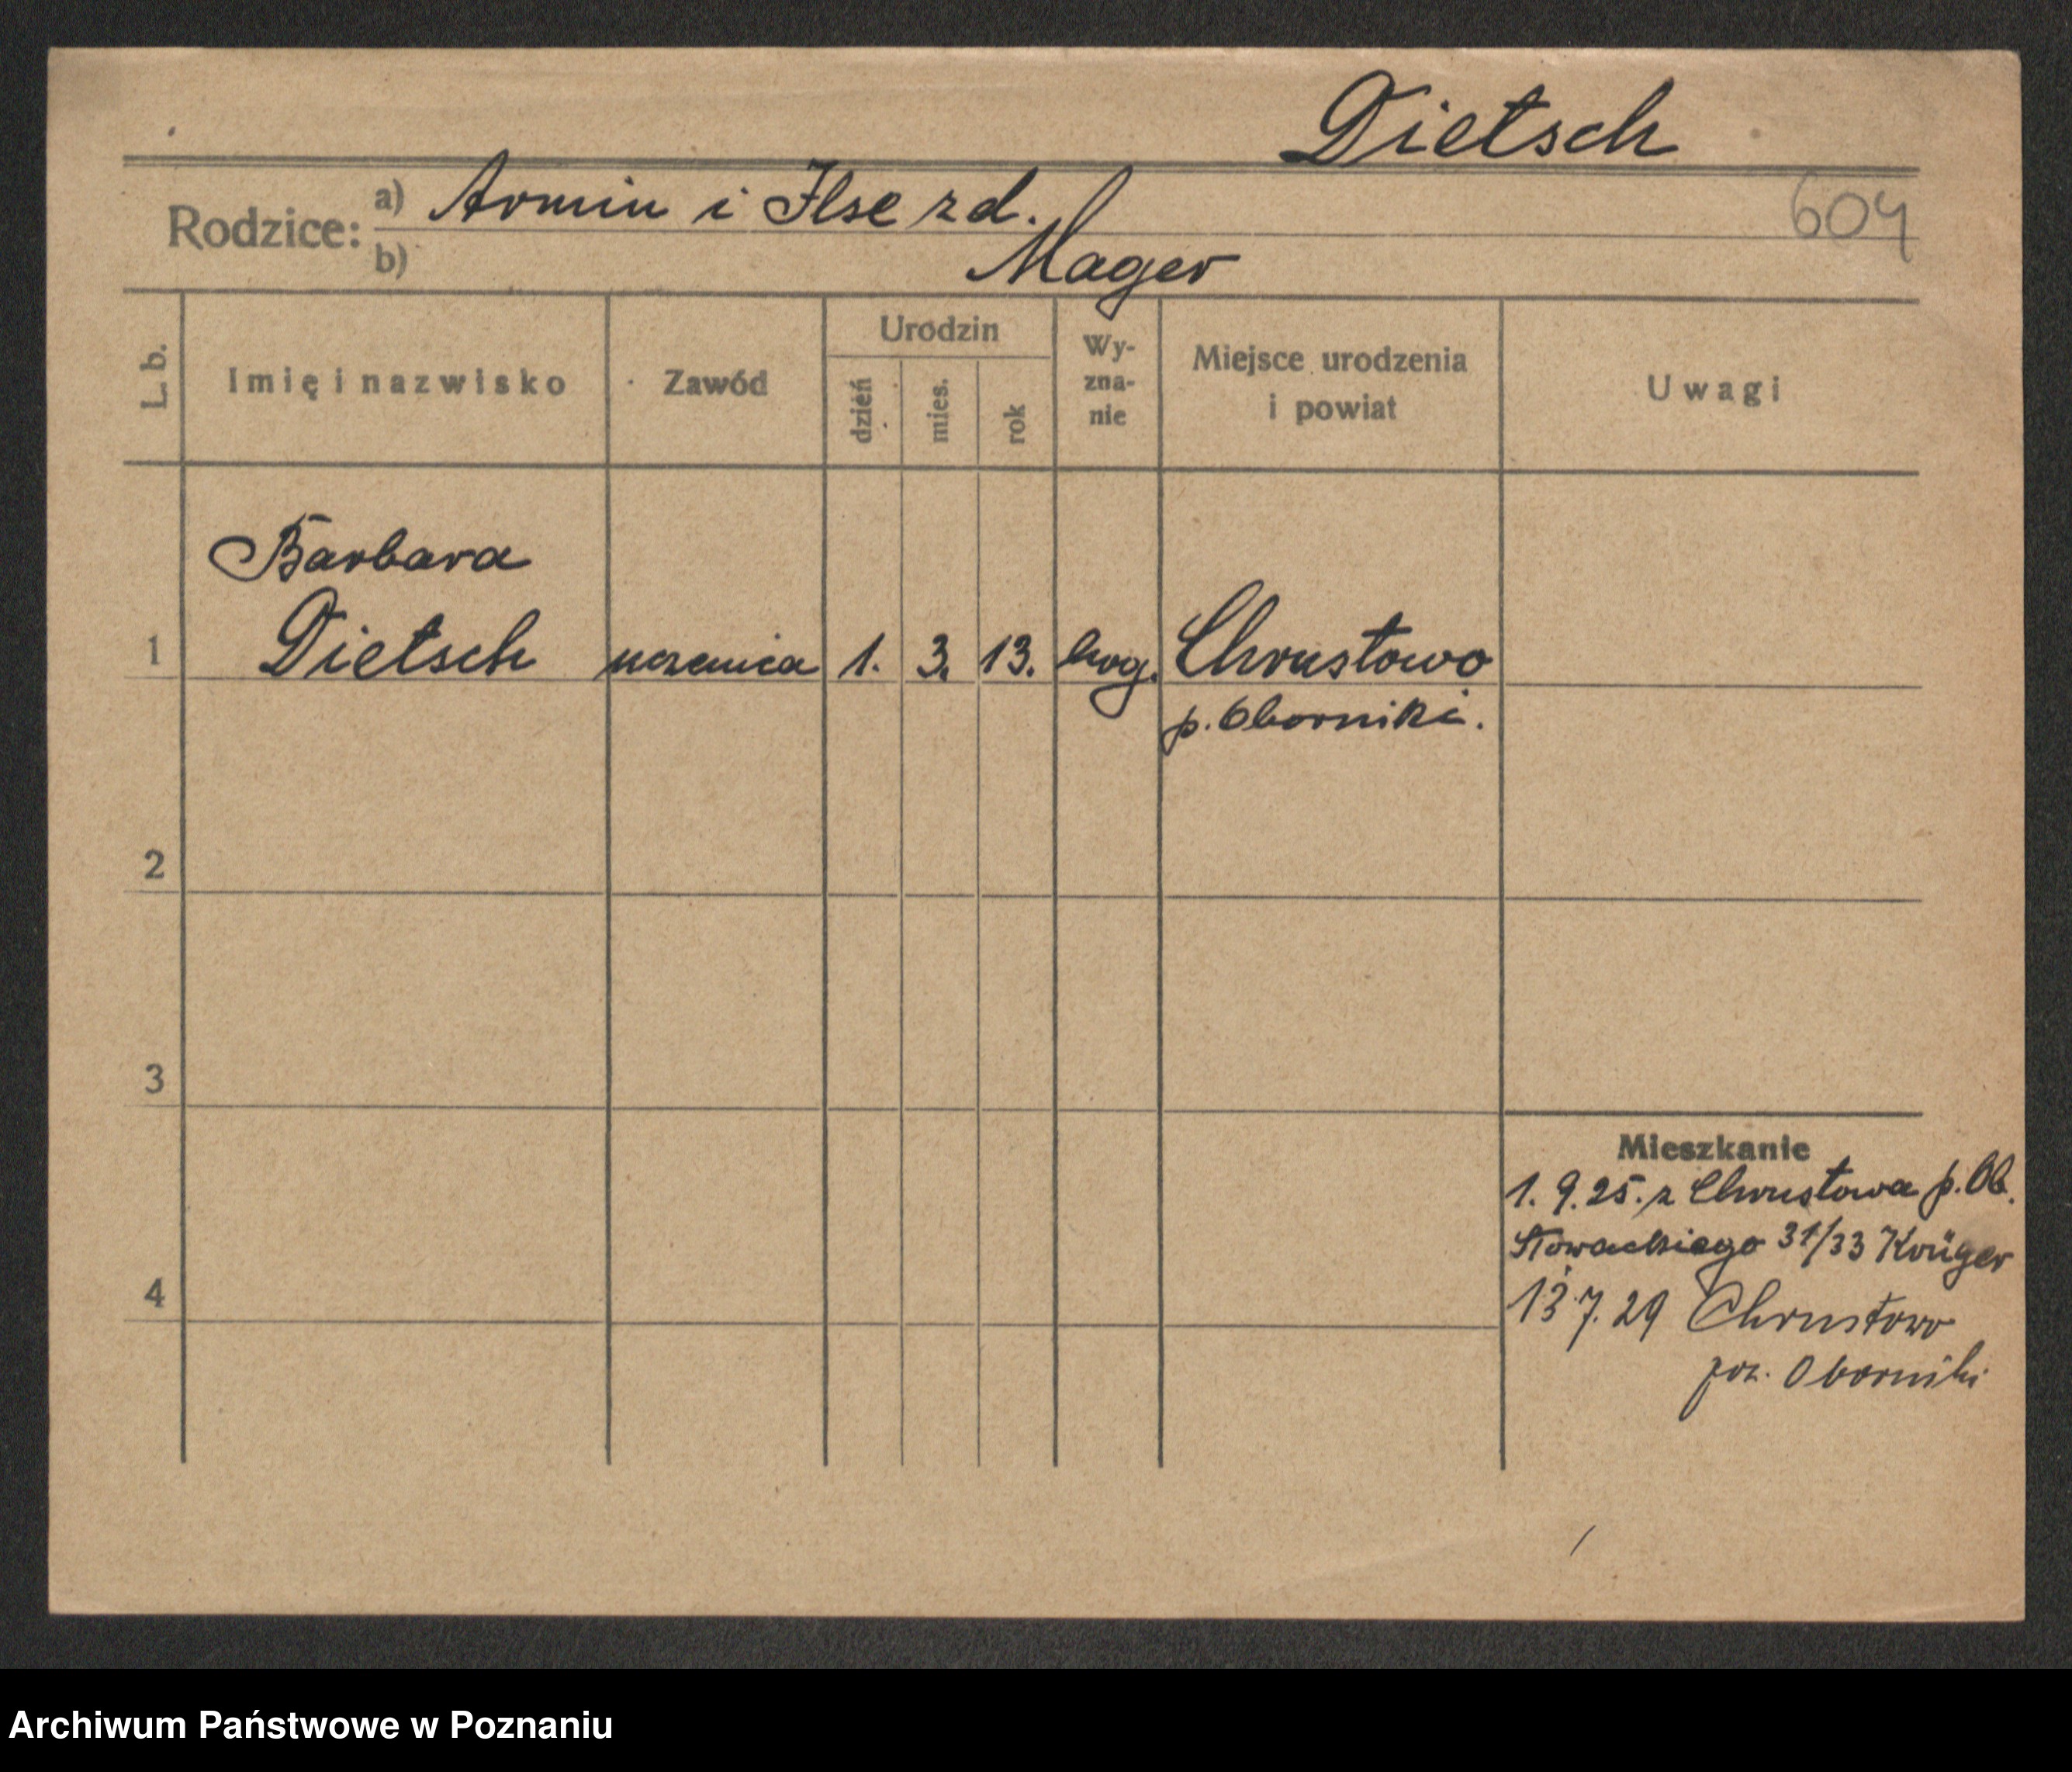 Dietsch
Rodzice: a) Armin i Ilse zd.
604
b) Mager
L. b.
Imię i nazwisko
Zawód
Urodzin
dzień
mies.
rok
Wy-
zna-
nie
Miejsce urodzenia
i powiat
Uwagi
Barbara
1 Dietsch uczenica 1. 3. 13. Chrustowo
p. Oborniki.
2
3
Mieszkanie
1. 9. 25. z Chrustowa p. Ob.
Słowackiego 31/33 Krüger
4
13.7.29 Chrustowo
pow. Oborniki
Archiwum Państwowe w Poznaniu